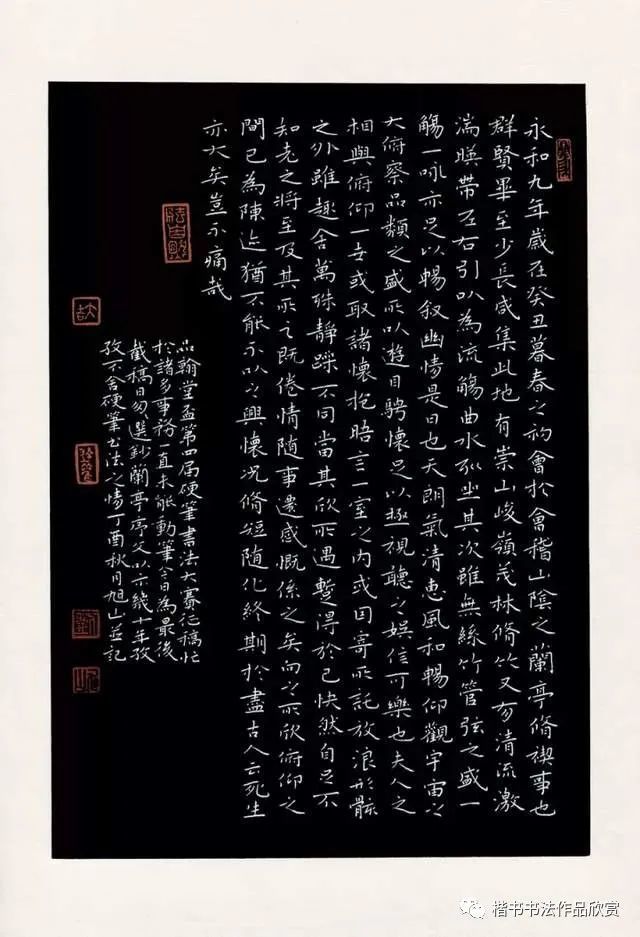 永和九年歲在癸丑暮春之初會於會稽山陰之蘭亭脩禊事也
群賢畢至少長咸集此地有崇山峻嶺茂林脩竹又有清流激
湍暎帶左右引以為流觴曲水列坐其次雖無絲竹管弦之盛一
觴一詠亦足以暢叙幽情是日也天朗氣清惠風和暢仰觀宇宙之
大俯察品類之盛所以遊目騁懷足以極視聽之娛信可樂也夫人之
相與俯仰一世或取諸懷抱晤言一室之内或因寄所託放浪形骸
之外雖趣舍萬殊靜躁不同當其欣所遇暫得於己快然自足不
知老之將至及其所之既倦情隨事遷感慨係之矣向之所欣俯仰之
間已為陳迹猶不能不以之興懷況脩短隨化終期於盡古人云死生
亦大矣豈不痛哉
品翰堂盃第四届硬筆書法大賽征稿忙
於諸多事務一直未能動筆今日為最後
截稿日匆選鈔蘭亭序文以示幾十年孜
孜不舍硬筆書法之情丁酉秋月旭山並記
楷书书法作品欣赏